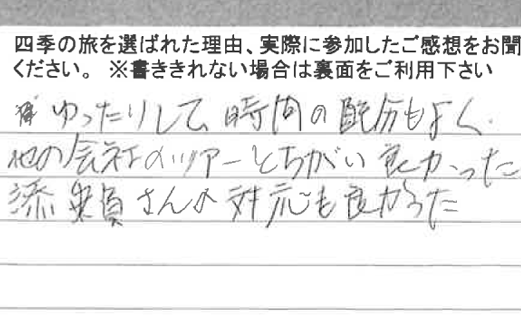 四季の旅を選ばれた理由、実際に参加したご感想をお聞
ください。 ※書ききれない場合は裏面をご利用下さい
ゆったりして、時間の配分もよく、
他の会社のツアーとちがい良かった
添乗員さんの対応も良かった